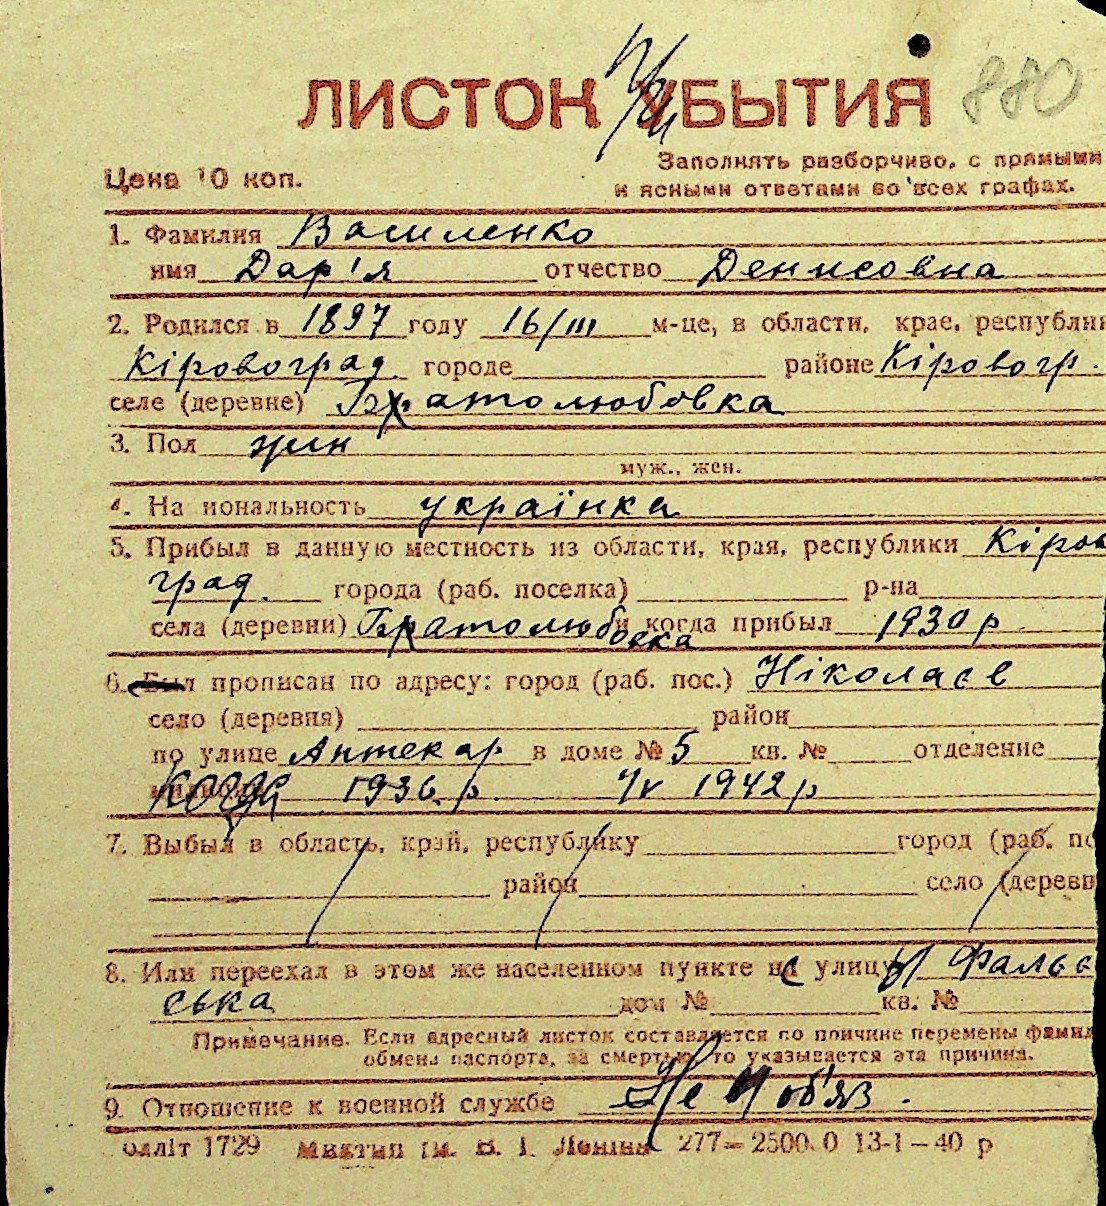 ЛИСТОК УБЫТИЯ 880
Цена 10 коп.
Заполнять разборчиво, с прямыми
и ясными ответами во всех графах.
1. Фамилия Василенко
имя Дар'я отчество Денисовна
2. Родился в 1897 году 16/III м-це, в области, крае, республи
Кіровоград. городе районе Кіровогр.
селе (деревне) Братолюбовка
3. Пол жін
муж., жен.
4. На иональность українка
5. Прибыл в данную местность из области, края, республики Кіров
град. города (раб. поселка) р-на
села (деревни) Братолюбовка когда прибыл 1930 р
6. Был прописан по адресу: город (раб. пос.) Ніколаєв
село (деревня) район
по улице Аптекар в доме № 5 кв. № отделение
когда 1936 р. 1942 р
7. Выбыл в область, край, республику город (раб. по
район село (деревн
8. Или переехал в этом же населенном пункте с улицы Фальє
ська дом № кв. №
Примечание. Если адресный листок составляется по причине перемены фамил
обмена паспорта, за смертью, то указывается эта причина.
9. Отношение к военной службе Не об'яз.
олліт 1729 ім. В. І. Леніна 277—2500.0 13-1—40 р